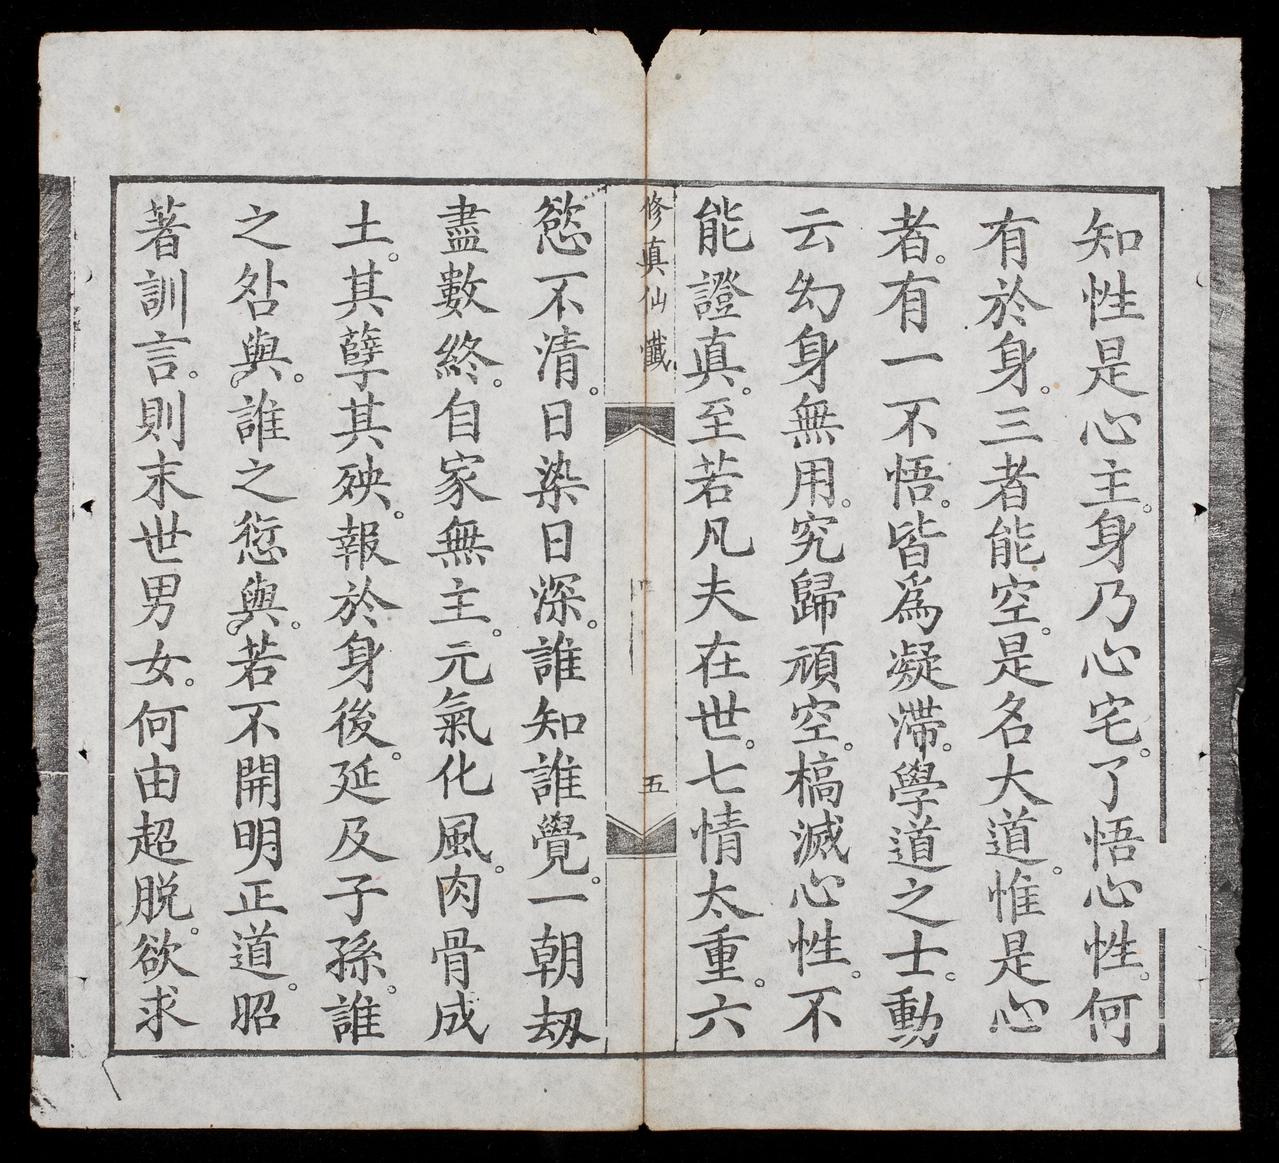 知性是心主。身乃心宅。了悟心性。何
有於身。三者能空。是名大道。惟是心
者。有一不悟。皆爲凝滯。學道之士。動
云幻身無用。究歸頑空。槁滅心性。不
能證真。至若凡夫在世。七情太重。六
修真仙懺
五
慾不清。日染日深。誰知誰覺。一朝劫
盡數終。自家無主。元氣化風。肉骨成
土。其孽其殃。報於身後。延及子孫。誰
之咎與。誰之愆與。若不開明正道。昭
著訓言。則末世男女。何由超脱。欲求